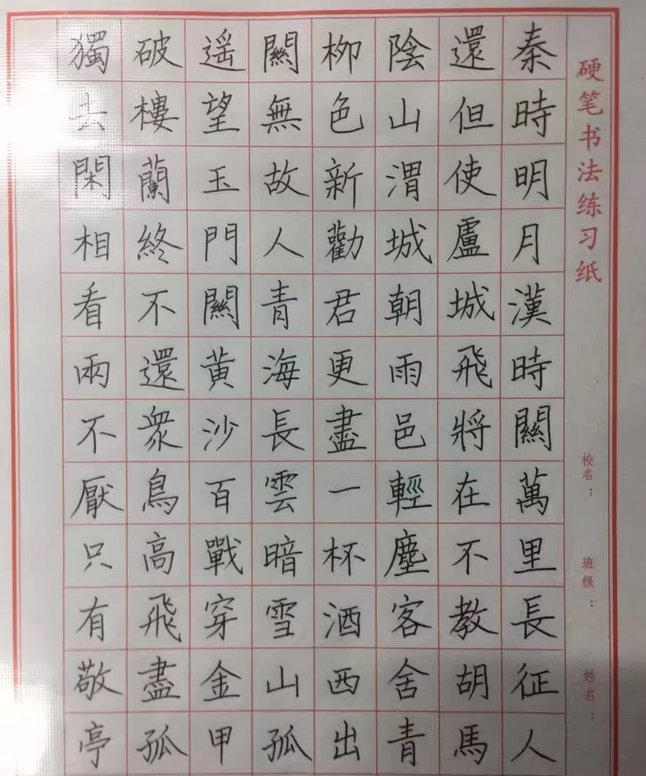 硬笔书法练习纸
校名：
班级：
姓名：
秦時明月漢時關萬里長征人
還但使盧城飛將在不教胡馬
陰山渭城朝雨邑輕塵客舍青
柳色新勸君更盡一杯酒西出
關無故人青海長雲暗雪山孤
遥望玉門關黄沙百戰穿金甲
破樓蘭終不還衆鳥高飛盡孤
獨去閑相看兩不厭只有敬亭